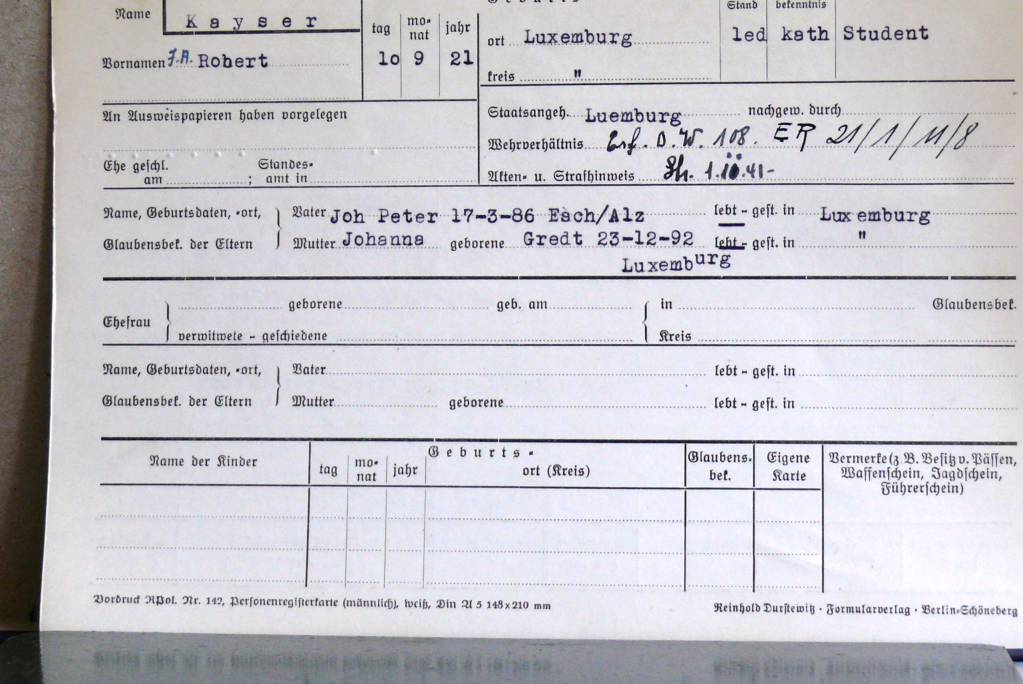 Name K a y s e r tag mo- nat jahr Stand bekenntnis
Vornamen J.A. Robert lo 9 21 ort Luxemburg led kath Student
kreis "
An Ausweispapieren haben vorgelegen
Staatsangeh. Luemburg nachgew. durch
Wehrverhältnis Erf. D.W. 108. ER 21/1/11/8
Ehe geschl. am ; Standes- amt in
Akten- u. Strafhinweis
Name, Geburtsdaten, -ort, Vater Joh Peter 17-3-86 Esch/Alz lebt - gest. in Luxemburg
Glaubensbek. der Eltern Mutter Johanna geborene Gredt 23-12-92 lebt - gest. in "
Luxemburg
Ehefrau geborene geb. am in Glaubensbek.
verwitwete - geschiedene Kreis
Name, Geburtsdaten, -ort, Vater lebt - gest. in
Glaubensbek. der Eltern Mutter geborene lebt - gest. in
Name der Kinder G e b u r t s - Glaubens- bek. Eigene Karte Vermerke (z. B. Besitz v. Pässen,
tag mo- nat jahr ort (Kreis) Waffenschein, Jagdschein,
Führerschein)
Vordruck RPol. Nr. 142, Personenregisterkarte (männlich), weiß, Din A 5 148x210 mm
Reinhold Durstewitz · Formularverlag · Berlin-Schöneberg